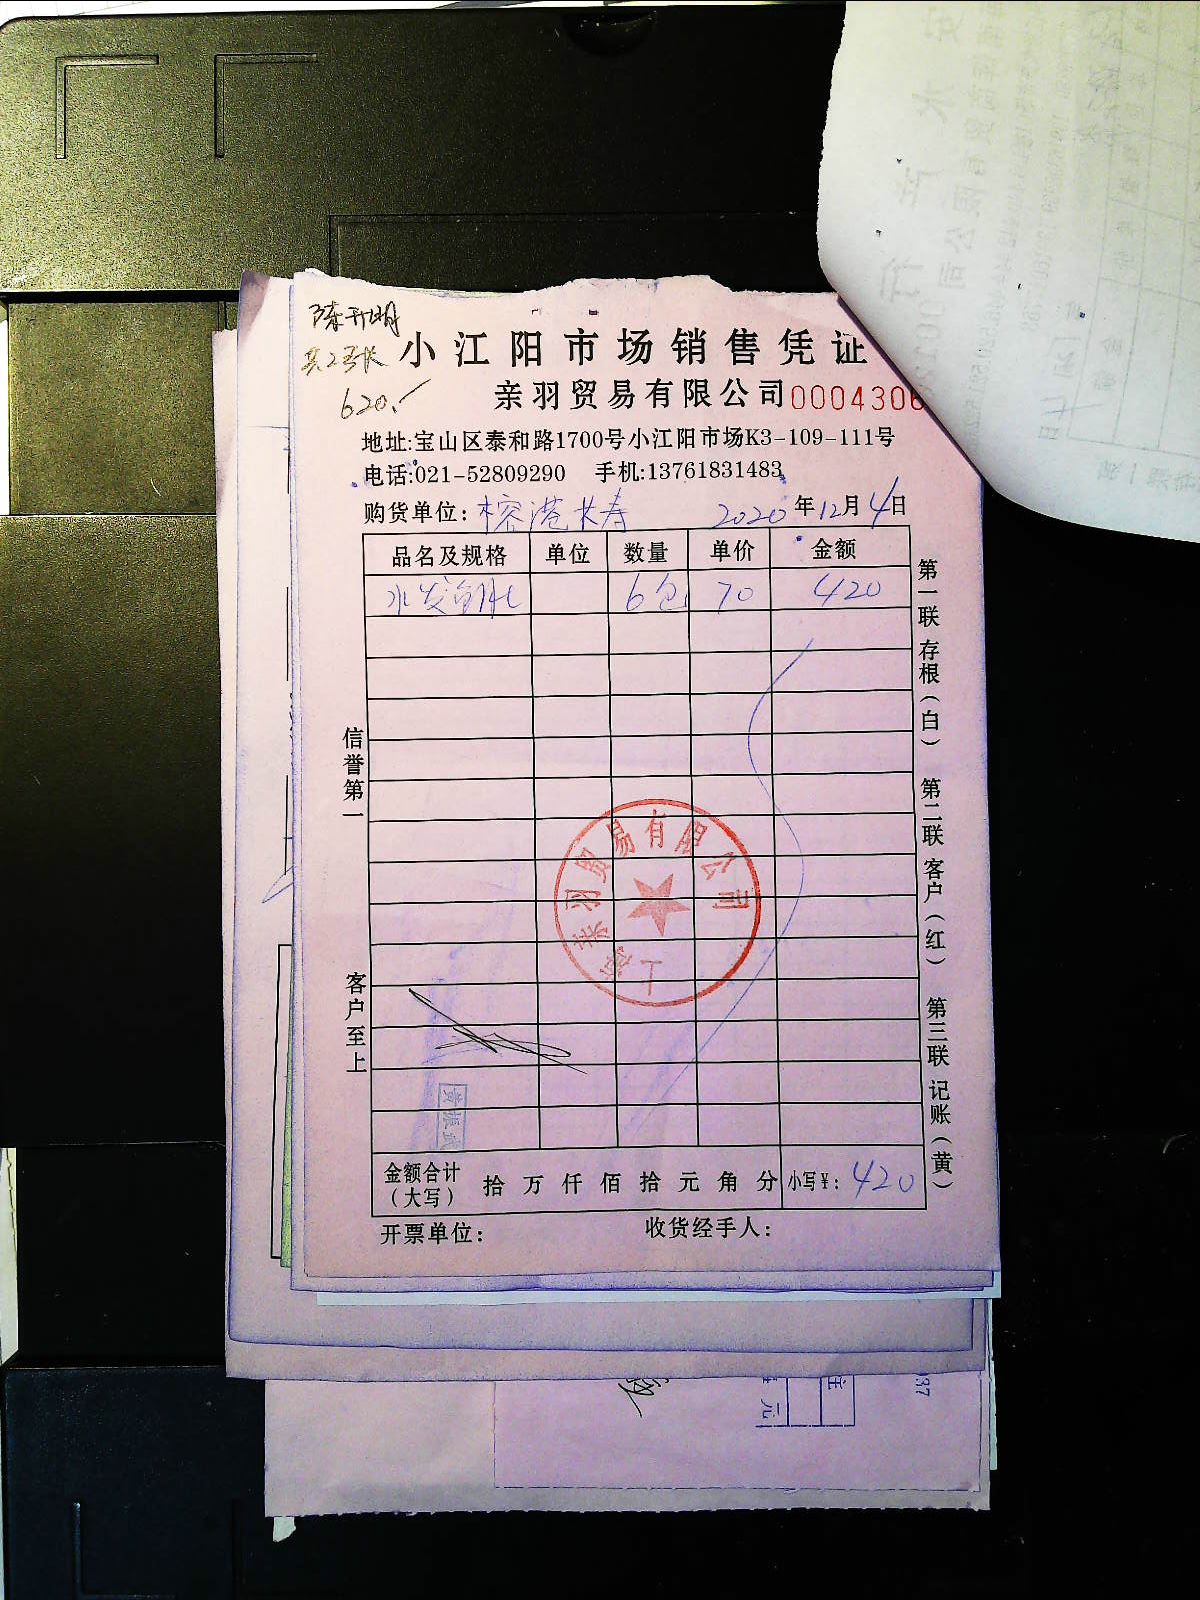 陈开明
共2张
620.
小江阳市场销售凭证
亲羽贸易有限公司 000430
地址:宝山区泰和路1700号小江阳市场K3-109-111号
电话:021-52809290 手机:13761831483
购货单位: 榕港长寿 2020年12月4日
品名及规格 单位 数量 单价 金额
水发鱼肚 6包 70 420
信誉第一
客户至上
第一联 存根(白) 第二联 客户(红) 第三联 记账(黄)
上海亲羽贸易有限公司
金额合计(大写) 拾 万 仟 佰 拾 元 角 分 小写¥: 420
开票单位: 收货经手人: